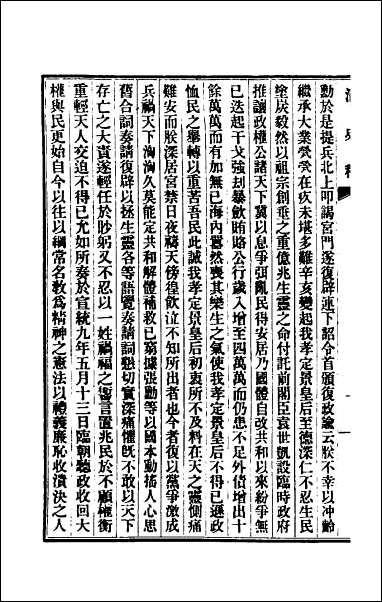 勳於是提兵北上卽謁宮門遂復辟連下詔令首頒復政諭云朕不幸以沖齡
繼承大業煢煢在疚未堪多難辛亥變起我孝定景皇后至德深仁不忍生民
塗炭毅然以祖宗創垂之重億兆生靈之命付託前閣臣袁世凱設臨時政府
推讓政權公諸天下冀以息爭弭亂民得安居乃國體自改共和以來紛爭無
已迭起干戈強刦暴斂賄賂公行歲入增至四萬萬而仍患不足外債增出十
餘萬萬而有加無已海內囂然喪其樂生之氣使我孝定景皇后不得已遜政
恤民之舉轉以重苦吾民此誠我孝定景皇后初衷所不及料在天之靈惻痛
難安而朕深居宮禁日夜禱天傍徨飲泣不知所出者也今者復以黨爭激成
兵禍天下洶洶久莫能定共和解體補救已窮據張勳等以國本動搖人心思
舊合詞奏請復辟以拯生靈各等語覽奏請詞懇切實深痛懼旣不敢以天下
存亡之大責遂輕任於眇躬又不忍以一姓禍福之譽言置兆民於不顧權衡
重輕天人交迫不得已允如所奏於宣統九年五月十三日臨朝聽政收回大
權與民更始自今以往以綱常名敎爲精神之憲法以禮義廉恥收潰決之人